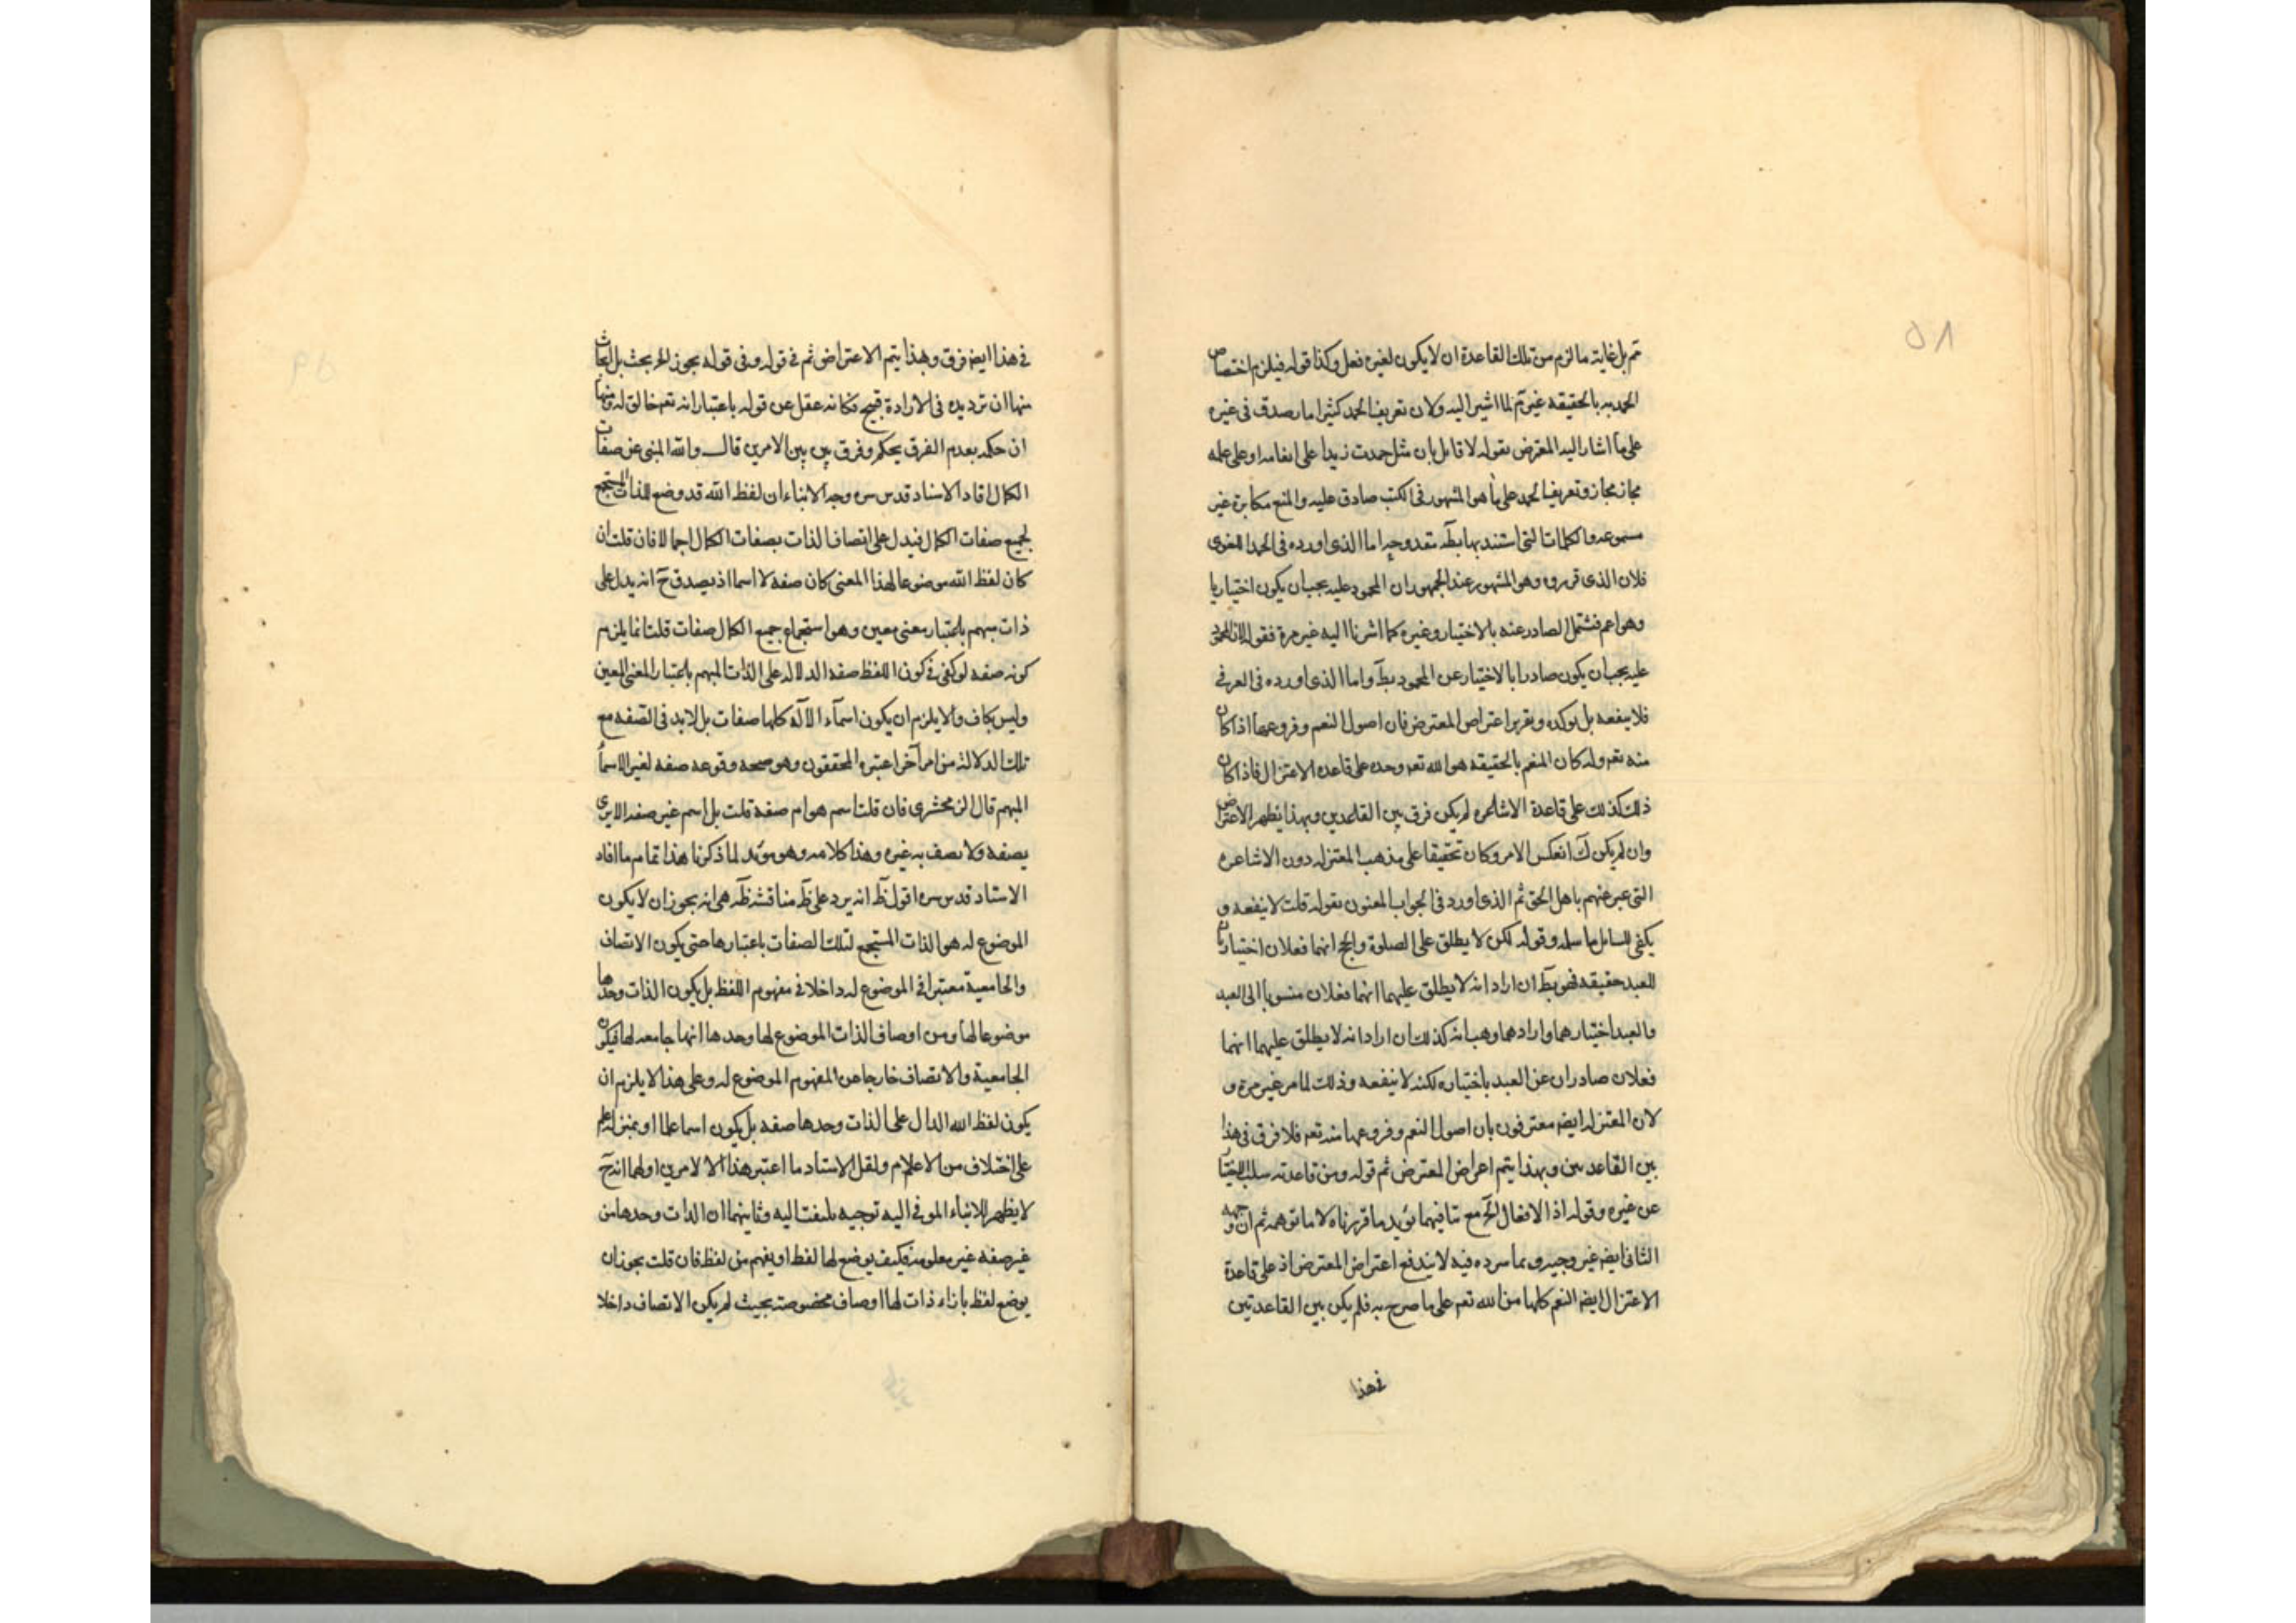 تم بل غاية ما لزم من تلك القاعدة ان لا يكون لغيره فعل وكذا قوله فيلزم اختصاص
الحمد به بالحقيقه غير تم لما اشير اليه ولان تعريف الحمد كثيرا ما يصدق فى غيره
على ما اشار اليه المعترض بقوله لا قايل بان مثل حمدت زيدا على انعامه او على علمه
مجاز مجاز وتعريف الحمد على ما هو المشهور فى الكتب صادق عليه والمنع مكابرة غير
مسموعه والكلمات التى استند بها بط تقدوجه اما الذى اورده فى الحمد اللغوى
فلان الذى قرروه وهو المشهور عند الجمهور ان المحمود عليه يجب ان يكون اختياريا
وهو اعم فشتمل الصادر عنه بالاختيار وغيره كما اشرنا اليه غير مرة فقوله لان المحمود
عليه يجب ان يكون صادرا بالاختيار عن المحمود بط واما الذى اورده فى العرفى
فلا ينفعه بل يوكده ويقرر اعتراض المعترض فان اصول النعم وفروعها اذا كان
منه تعم وله كان المنعم بالحقيقه هو الله تعم وحده على قاعده الاعتزال فاذا كان
ذلك كذلك على قاعدة الاشاعره لم يكن فرق بين القاعدين وبهذا يظهر الاعتراض
وان لم يكن ك انعكس الامر وكان تحقيقا على مذهب المعتزله دون الاشاعره
التى عبر عنهم باهل الحق ثم الذى اورد فى الجواب المعنون بقوله قلت لا ينفعه و
يكفى للسايل ما سلمه وقوله لكن لا يطلق على الصلوة والحج انهما فعلان اختياريان
للعبد حقيقه فهو بط ان اراد انه لا يطلق عليهما انهما فعلان منسوبا الى العبد
والعبد اختيارهما وارادهما وهب انه كذلك ان اراد انه لا يطلق عليهما انهما
فعلان صادران عن العبد باختياره لكنه لا ينفعه وذلك لما مر غير مرة و
لان المعتزله ايضه معترفون بان اصول النعم وفروعها منه تعم فلا فرق فى هذا
بين القاعدتين وبهذا يتم اعراض المعترض ثم قوله ومن قاعدته سلب الاختيار
عن غيره وقوله اذ الافعال الخ مع تنافيهما يؤيد ما قررناه لا ما توهمه ثم ان وجهه
الثانى ايضه غير وجيه وما سرده فيه لا يندفع اعتراض المعترض اذ على قاعدة
الاعتزال ايضه النعم كلها من الله تعم على ما صرح به فلم يكن بين القاعدتين
فى هذا
فى هذا ايضه فرق وبهذا يتم الاعتراض ثم فى قوله وفى قوله يجوز الخ بحث بل ابحاث
منها ان ترديده فى الارادة قبيح فكانه غفل عن قوله باعتبار انه تعم خالق له ومنها
ان حكمه بعدم الفرق يحكم وفرق بين بين الامرين قال والله المنبى عن صفات
الكمال افاد الاستاد قدس سره وجه الانباء ان لفظ الله قد وضع للذات المستجمع
لجميع صفات الكمال فيدل على اتصاف الذات بصفات الكمال اجمالا فان قلت ان
كان لفظ الله موضوعا لهذا المعنى كان صفه لا اسما اذ يصدق ح انه يدل على
ذات مبهم باعتبار معنى معين وهو استجماع جميع الكمال صفات قلت انما يلزم
كونه صفه لو كفى فى كون اللفظ صفه الدلاله على الذات المبهم باعتبار المعنى المعين
وليس بكاف والا يلزم ان يكون اسماء الآله كلها صفات بل لابد فى الصفه مع
تلك الدلالة من امر آخر اعتبره المحققون وهو صحه وقوعه صفه لغير الاسماء
المبهم قال الزمخشرى فان قلت اسم هو ام صفه قلت بل اسم غير صفه الا يرى
يصفه ولا يصف به غيره وهذا كلامه وهو مؤيد لما ذكرنا هذا تمام ما افاد
الاستاد قدس سره اقول ظ انه يرد على ظ مناقشه ظه هى انه يجوز ان لا يكون
الموضوع له هو الذات المستجمع لتلك الصفات باعتبارها حتى يكون الاتصاف
والجامعية معتبرا فى الموضوع له داخلا فى مفهوم اللفظ بل يكون الذات وحدها
موضوعا لها ومن اوصاف الذات الموضوع لها وحدها انها جامعه لها فيكون
الجامعية والاتصاف خارجا عن المفهوم الموضوع له وعلى هذا لا يلزم ان
يكون لفظ الله الدال على الذات وحدها صفه بل يكون اسما علما او بمنزله علم
على اختلاف من الاعلام ولقل الاستاد ما اعتبر هذا الا لامرين اولهما انه ح
لا يظهر للانباء الموفى اليه توجيه يلتفت اليه وثانيهما ان الذات وحدها من
غير صفه غير معلومه فكيف يوضع لها لفظ او يفهم من لفظ فان قلت يجوز ان
يوضع لفظ بازاء ذات لها اوصاف مخصوصة بحيث لم يكن الاتصاف داخلا